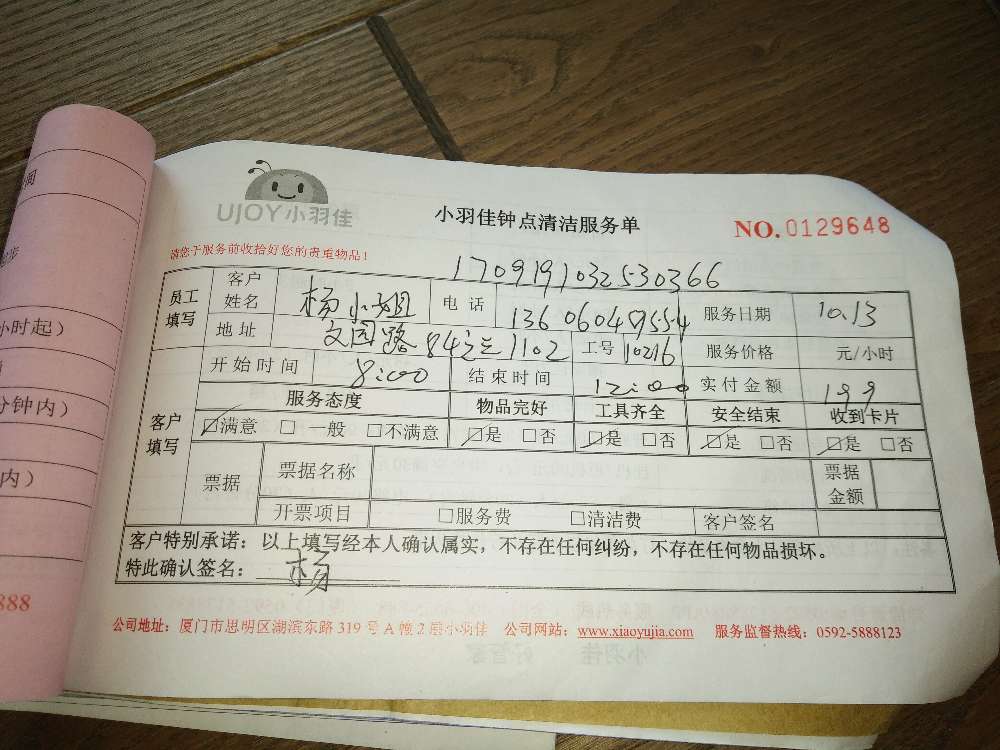 UJOY小羽佳
小羽佳钟点清洁服务单
NO.0129648
请您于服务前收拾好您的贵重物品!
1709191032530366
员工填写 客户姓名 杨小姐 电话 13606049554 服务日期 10.13
地址 文园路84之三1102 工号 10216 服务价格 元/小时
客户填写 开始时间 8:00 结束时间 12:00 实付金额 199
服务态度 物品完好 工具齐全 安全结束 收到卡片
☑满意 □一般 □不满意 ☑是 □否 ☑是 □否 ☑是 □否 ☑是 □否
票据 票据名称 票据金额
开票项目 □服务费 □清洁费 客户签名
客户特别承诺:以上填写经本人确认属实,不存在任何纠纷,不存在任何物品损坏。
特此确认签名: 杨
公司地址:厦门市思明区湖滨东路319号A幢2层小羽佳 公司网站:www.xiaoyujia.com 服务监督热线:0592-5888123
小时起)
分钟内)
内)
888